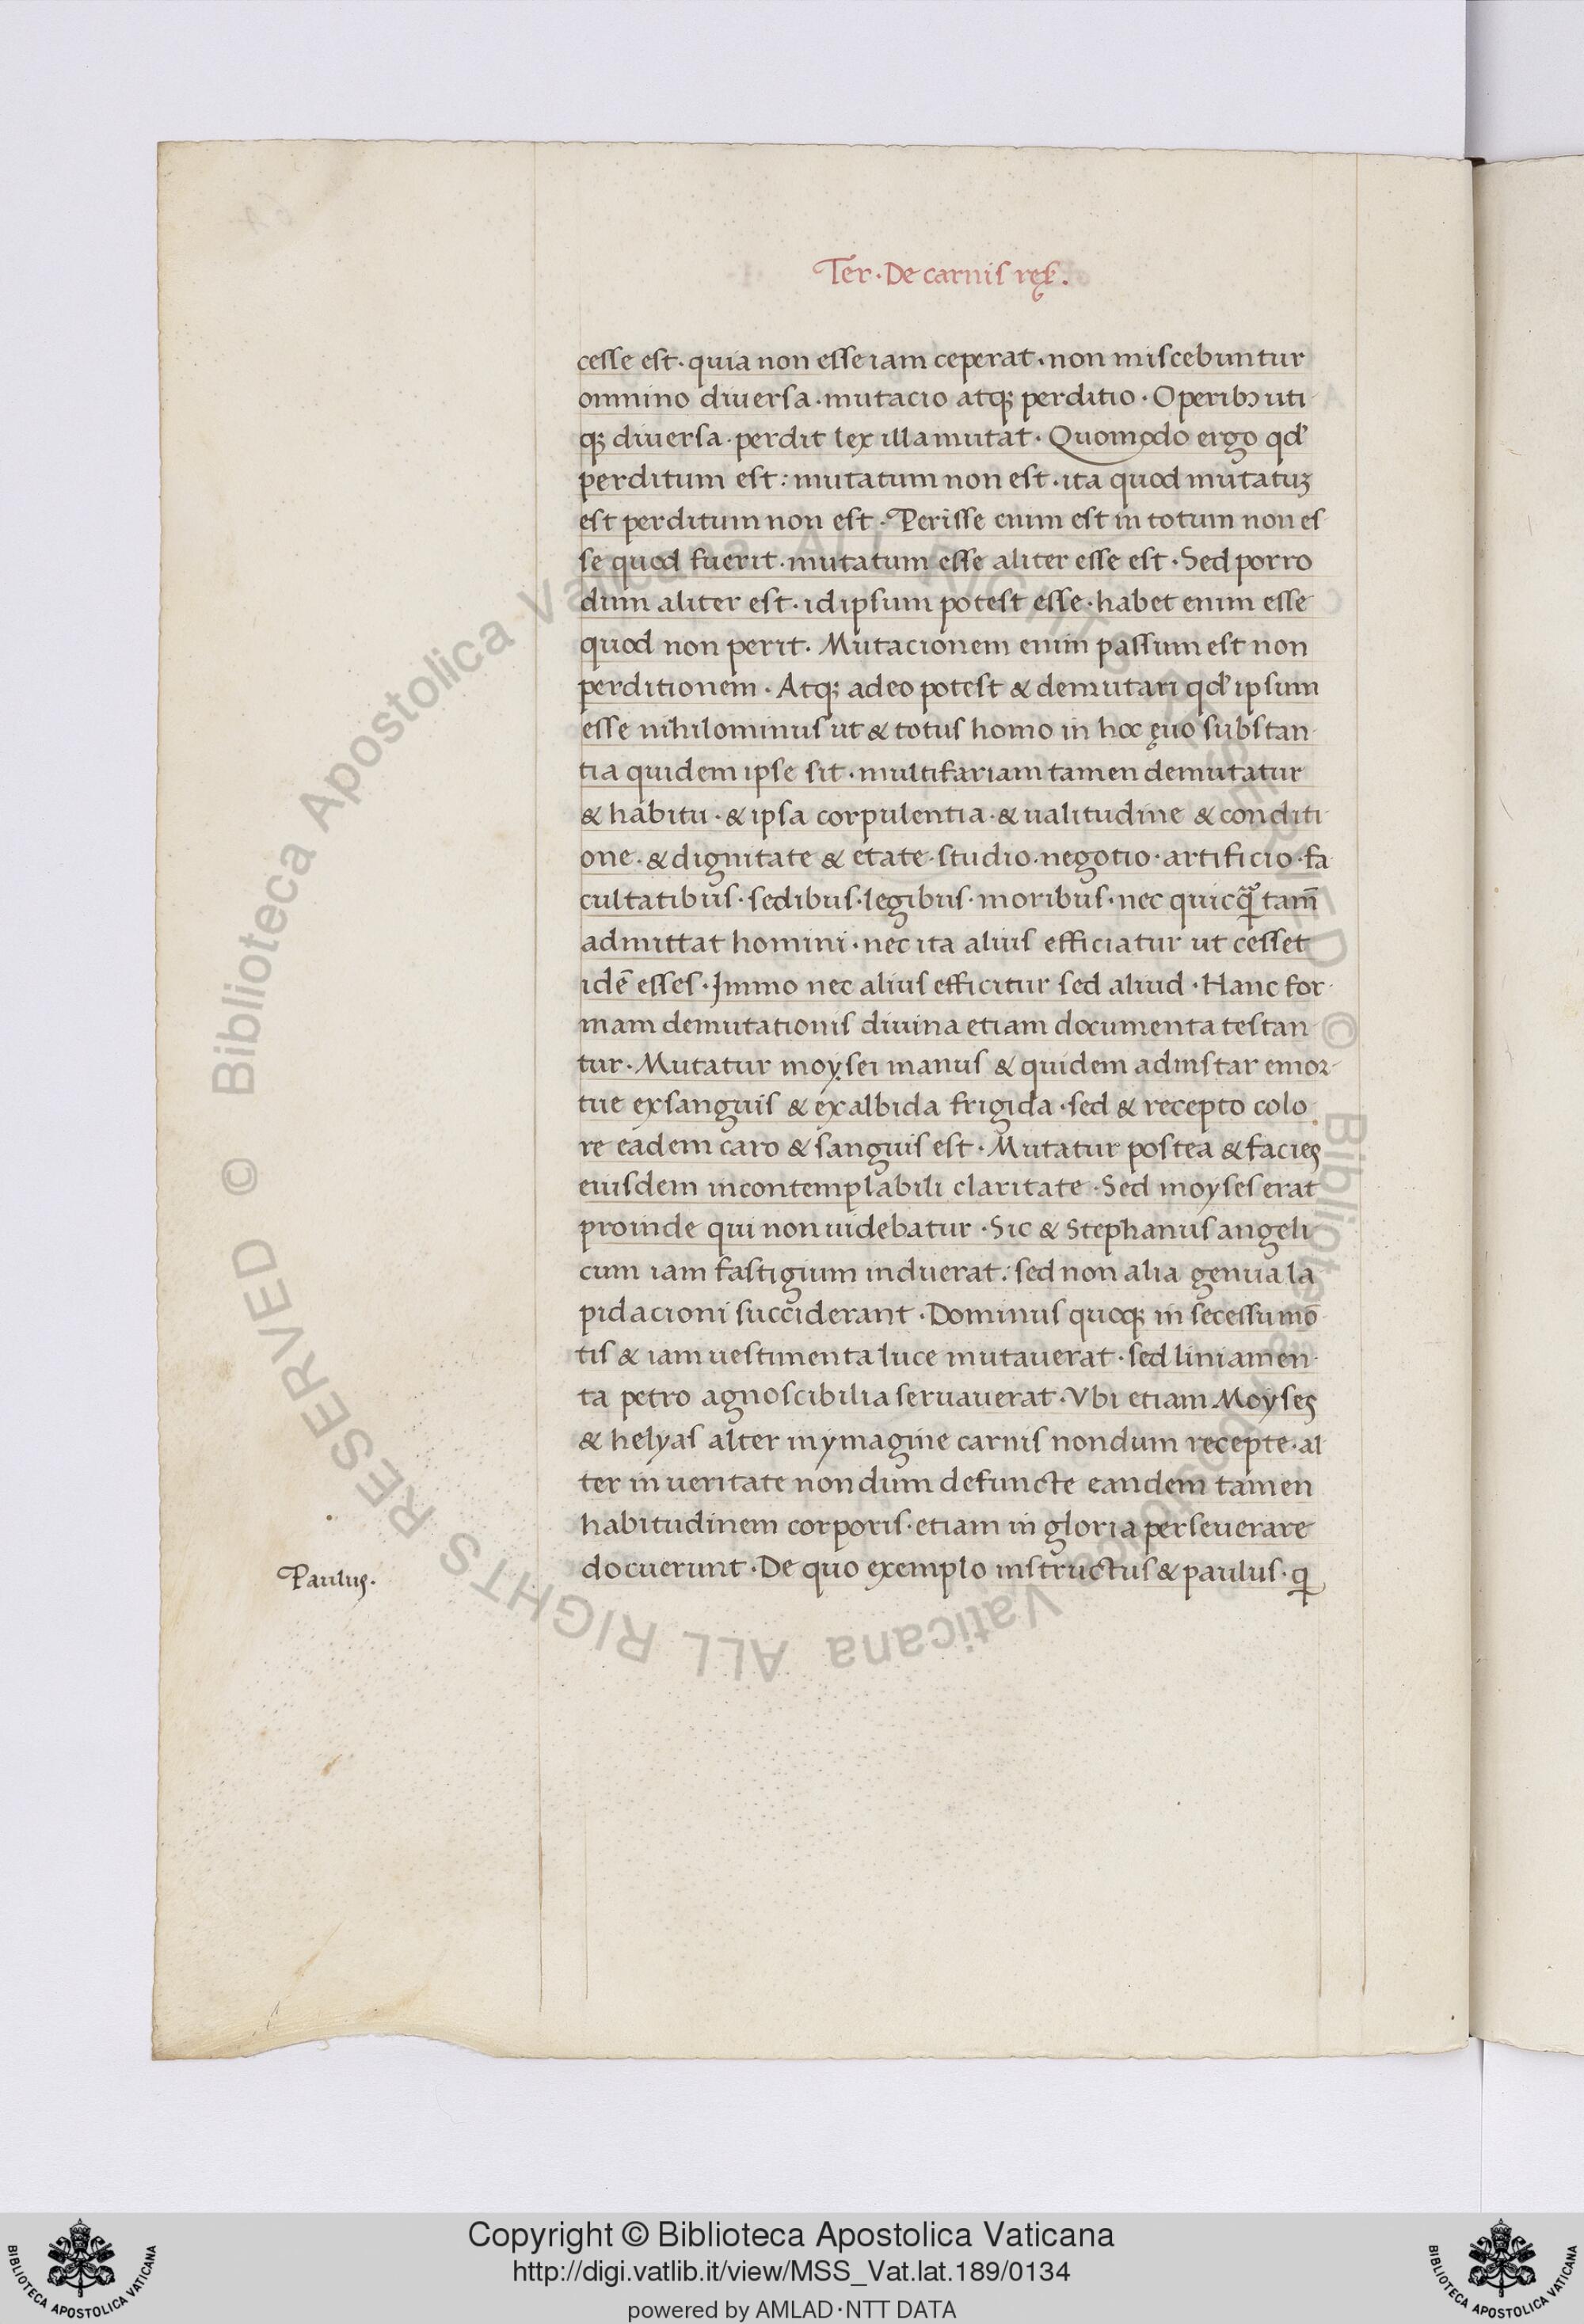 Ter · De carnis reſ.
cesse est · quia non esse iam ceperat · non miscebuntur
omnino diversa · mutacio atq; perditio · Operibꝫ uti
q; diversa · perdit lex illa mutat · Quomodo ergo qd'
perditum est: mutatum non est · ita quod mutatuꝫ
est perditum non est · Perisse enim est in totum non es
se quod fuerit · mutatum esse aliter esse est · Sed porro
dum aliter est · id ipsum potest esse · habet enim esse
quod non perit. Mutacionem enim passum est non
perditionem · Atq; adeo potest & demutari qd' ipsum
esse nihilominus ut & totus homo in hoc ęuo substan
tia quidem ipse sit · multifariam tamen demutatur
& habitu · & ipsa corpulentia · & ualitudine & conditi
one · & dignitate & etate · studio · negotio · artificio · fa
cultatibus · sedibus · legibus · moribus · nec quicꝗ̃ tam̄
admittat homini · nec ita alius efficiatur ut cesset
idē esses · Immo nec alius efficitur sed aliud · Hanc for
mam demutationis diuina etiam documenta testan
tur · Mutatur moysei manus & quidem adinstar emor
tue exsanguis & exalbida frigida · sed & recepto colo
re eadem caro & sanguis est · Mutatur postea & facies
eiusdem incontemplabili claritate · Sed moyses erat
proinde qui non uidebatur · Sic & Stephanus angeli
cum iam fastigium induerat: sed non alia genua la
pidacioni succiderant · Dominus quoq; in secessu mō
tis & iam uestimenta luce mutauerat · sed liniamen
ta petro agnoscibilia seruauerat · Vbi etiam Moyses
& helyas alter in ymagine carnis nondum recepte · al
ter in ueritate nondum defuncte eandem tamen
habitudinem corporis · etiam in gloria perseuerare
docuerunt · De quo exemplo instructus & paulus · ꝗ
Paulus.
© Biblioteca Apostolica Vaticana ALL RIGHTS RESERVED © Biblioteca Apostolica Vaticana ALL RIGHTS RESERVED
Copyright © Biblioteca Apostolica Vaticana
http://digi.vatlib.it/view/MSS_Vat.lat.189/0134
powered by AMLAD·NTT DATA
BIBLIOTECA APOSTOLICA VATICANA
BIBLIOTECA APOSTOLICA VATICANA